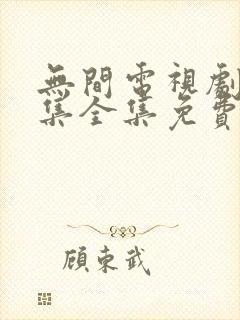 無間電視劇
集全集免費
顾東武